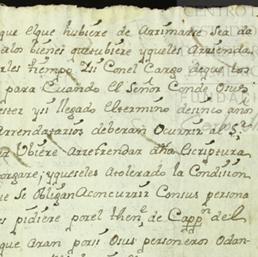 que elque hubiere de Arrimarse Sea da
alos bienes que tubiere yqueles Arrienda
tales tiempo Isi Conel Cargo deque los
para Cuando el Señor Conde Osus
ester ysi llegado eltermino desinco anos
Arrendatarios deberan Ocurrir al S.r
ubiere Arrefrendar dha Escriptura
orgare, yqueseles atolerado la Condision
que se Obligan Aconcurrir Consus persona
es pidiere porel then.e de Capp.n del
que aran porsi Osus personeros Odan